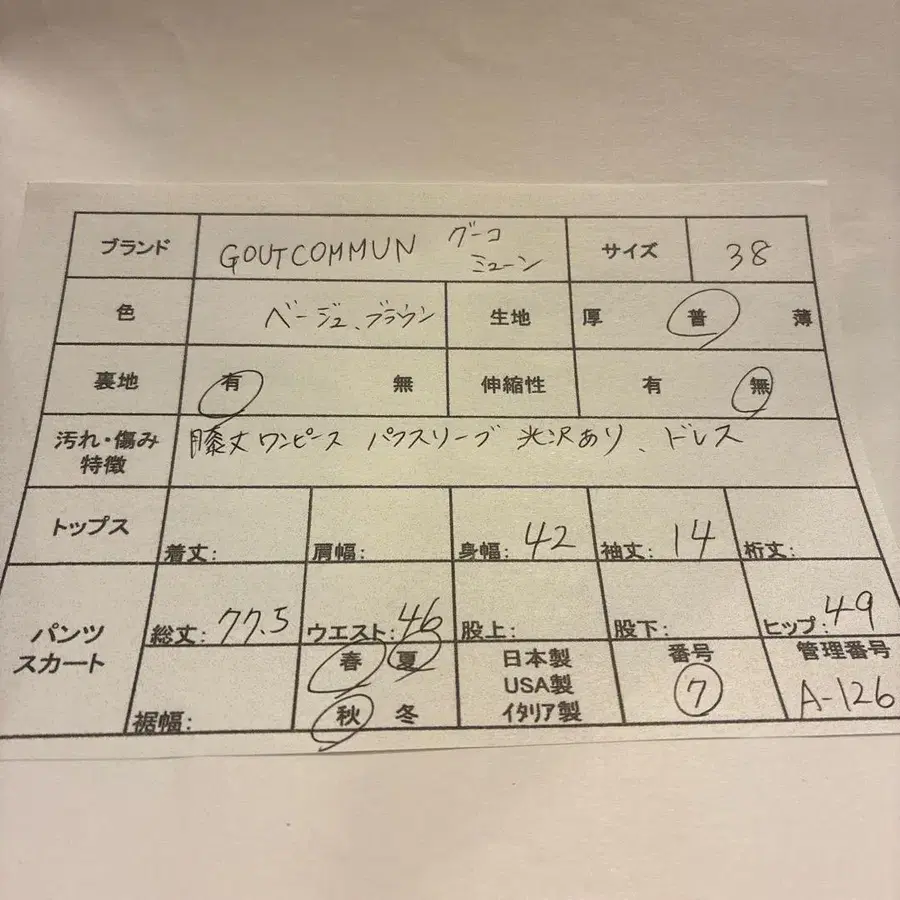 ブランド GOUTCOMMUN グーコ
ミューン サイズ 38
色 ベージュ、ブラウン 生地 厚 普 薄
裏地 有 無 伸縮性 有 無
汚れ・傷み
特徴 膝丈ワンピース パフスリーブ 光沢あり、ドレス
トップス 着丈: 肩幅: 身幅: 42 袖丈: 14 裄丈:
パンツ
スカート 総丈: 77.5 ウエスト: 46 股上: 股下: ヒップ: 49
裾幅: 春 夏
秋 冬
日本製
USA製
イタリア製
番号
7
管理番号
A-126